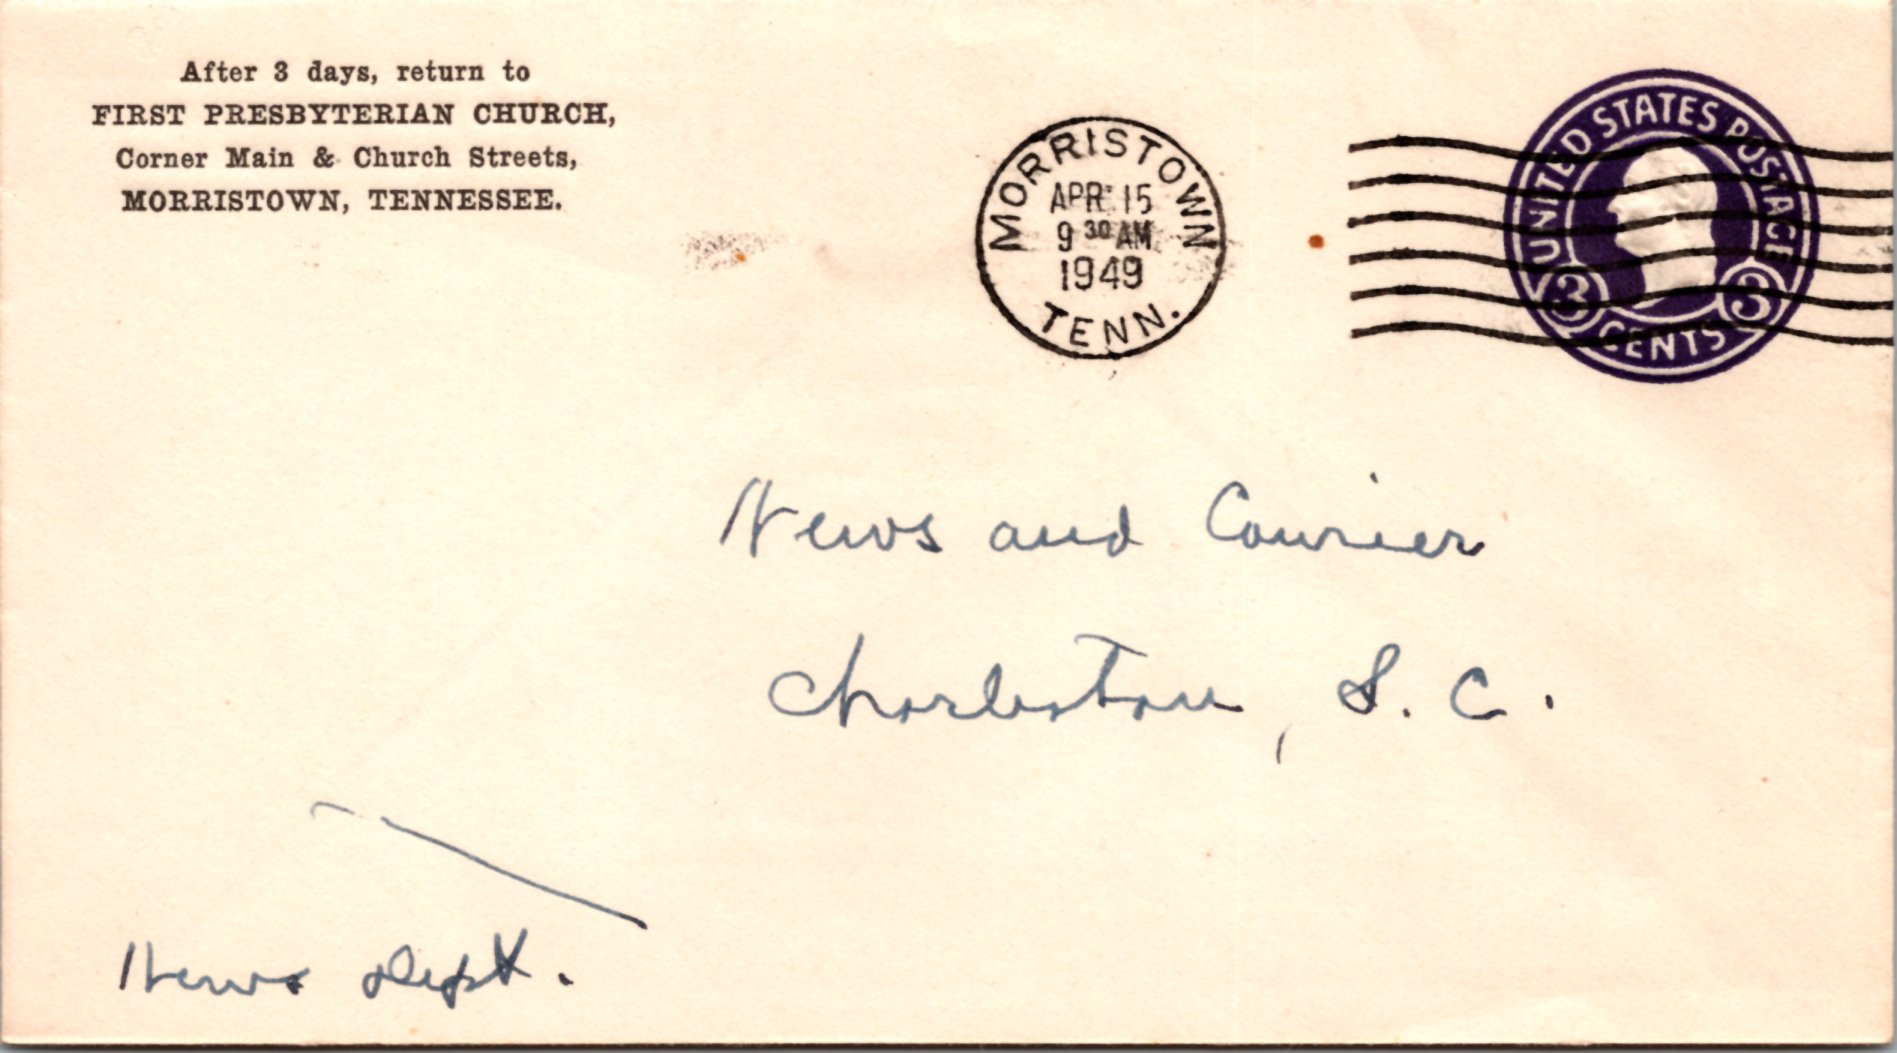 After 3 days, return to
FIRST PRESBYTERIAN CHURCH,
Corner Main & Church Streets,
MORRISTOWN, TENNESSEE.
MORRISTOWN
APR 15
9 30 AM
1949
TENN.
UNITED STATES POSTAGE
3 3
CENTS
News and Courier
Charleston, S. C.
News Dept.